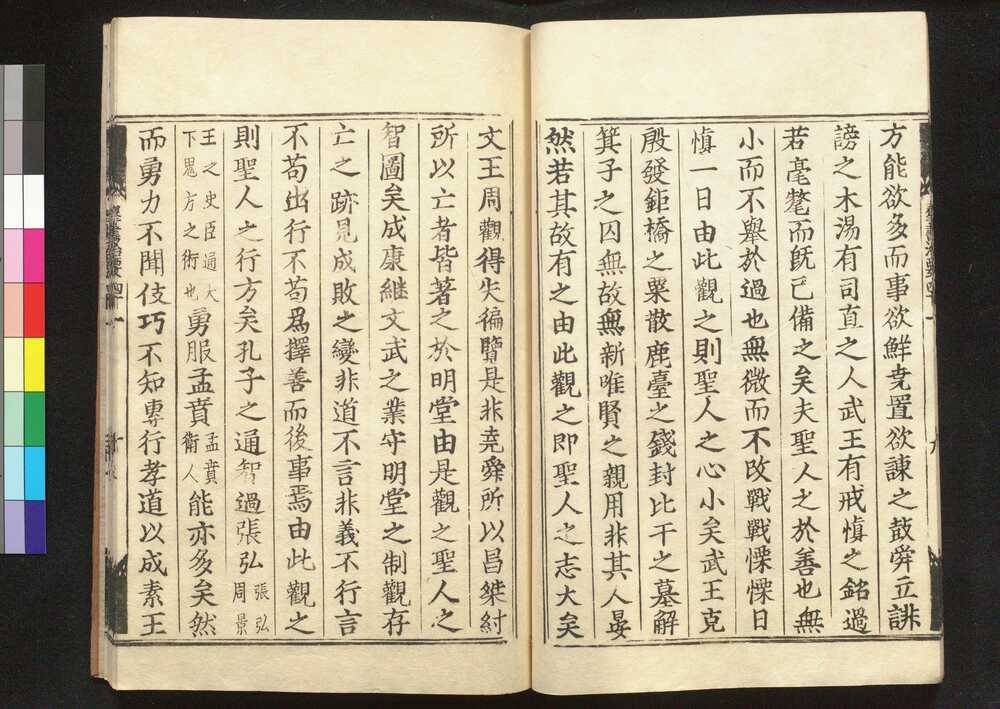 方能欲多而事欲鮮堯置欲諫之鼓舜立誹
謗之木湯有司直之人武王有戒愼之銘過
若毫氂而旣已備之矣夫聖人之於善也無
小而不舉於過也無微而不改戰戰慄慄日
愼一日由此觀之則聖人之心小矣武王克
殷發鉅橋之粟散鹿臺之錢封比干之墓解
箕子之囚無故無新唯賢之親用非其人晏
然若其故有之由此觀之即聖人之志大矣
文王周觀得失徧覽是非堯舜所以昌桀紂
所以亡者皆著之於明堂由是觀之聖人之
智圖矣成康繼文武之業守明堂之制觀存
亡之跡見成敗之變非道不言非義不行言
不苟出行不苟爲擇善而後事焉由此觀之
則聖人之行方矣孔子之通智過張弘張弘周景
王之史臣通大下鬼方之術也勇服孟賁孟賁衛人能亦多矣然
而勇力不聞伎巧不知專行孝道以成素王
群書治要四十一